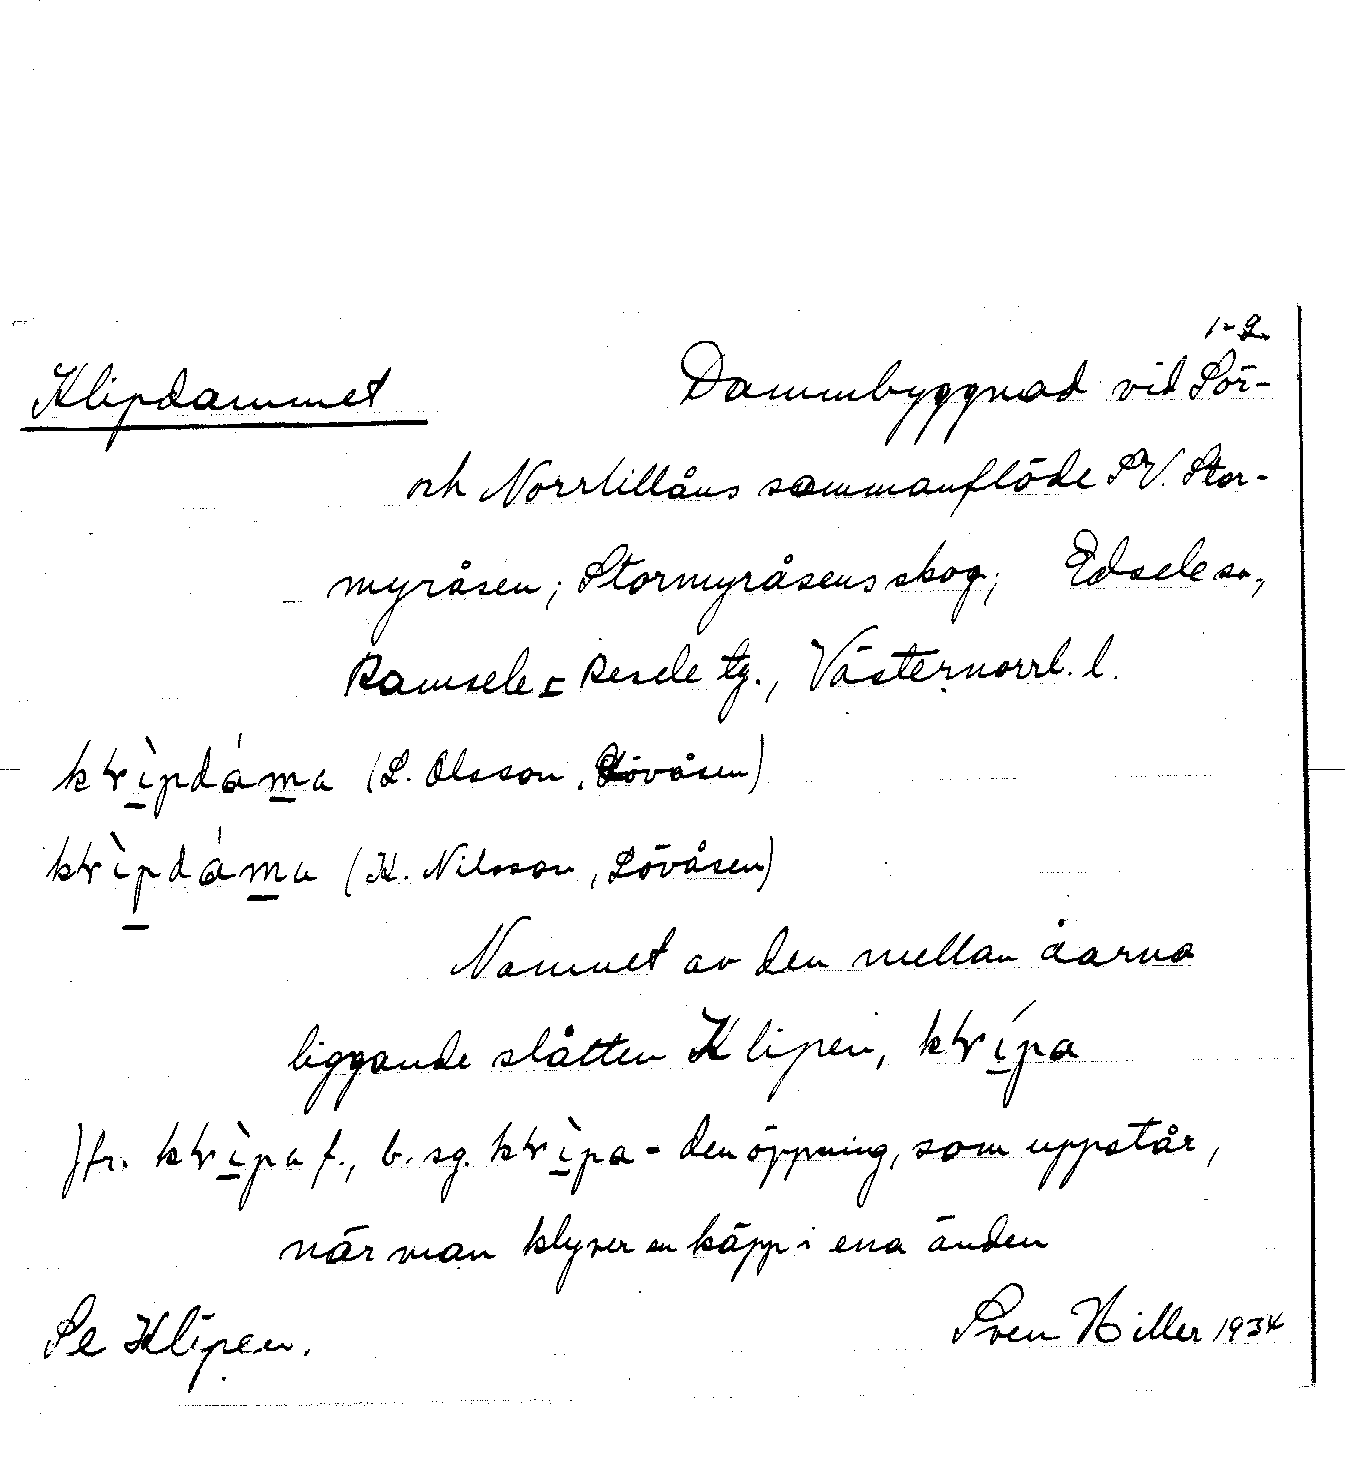 1-2.
Klipdammet Dammbyggnad vid Sör-
och Norrlillåns sammanflöde SV. Stor-
myråsen; Stormyråsens skog; Edsele sn,
Ramsele o Resele tg., Västernorrl. l.
(L. Olsson, Lövåsen)
(K. Nilsson, Lövåsen)
Namnet av den mellan åarna
liggande slåtten Klipen,
Jfr. f., b. sg. - den öppning, som uppstår,
när man klyver en käpp i ena änden
Se Klipen. Sven Hiller 1934